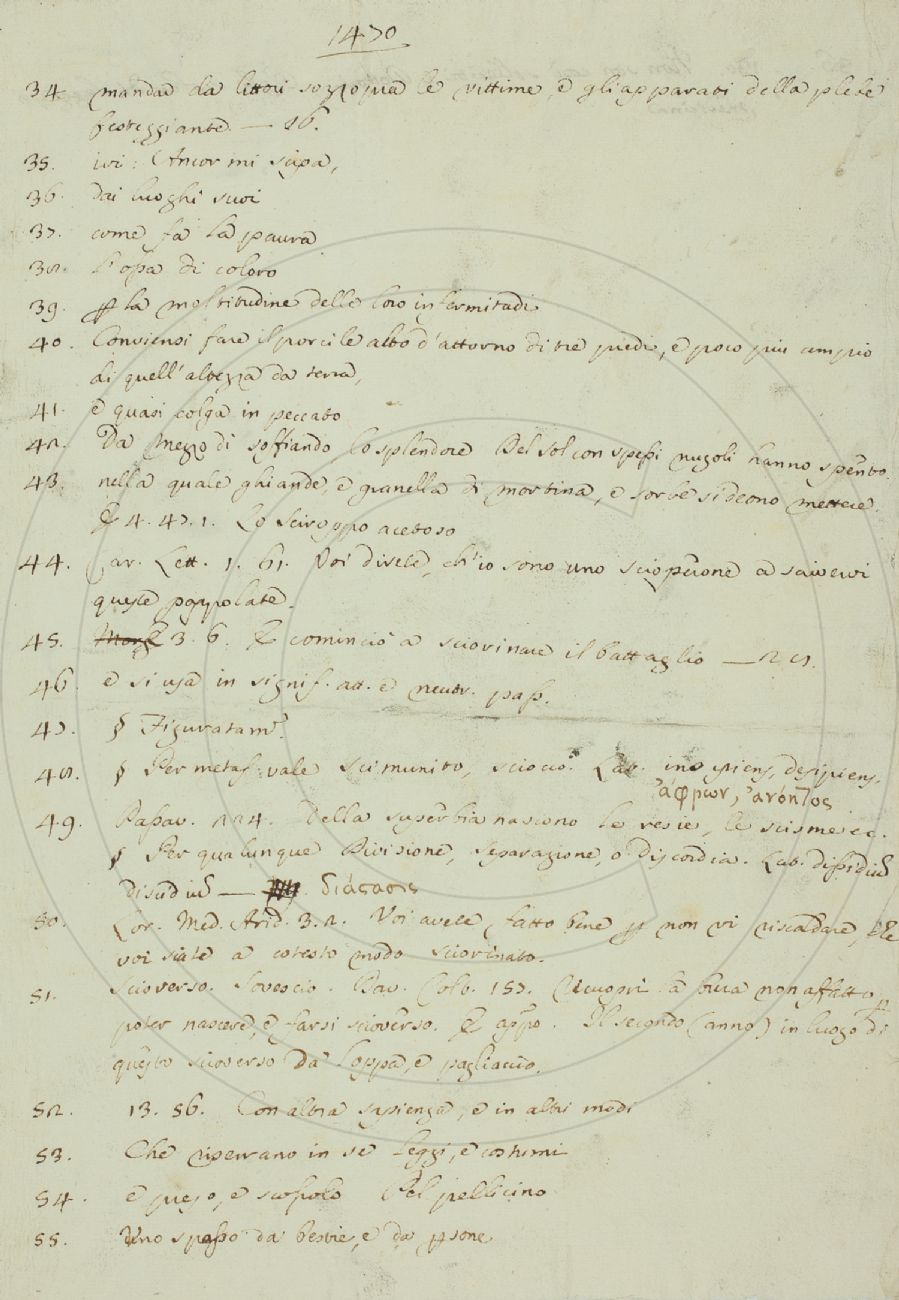 1470
34 mandar da littori sozzopra le vittime, e gli apparati della plebe
festeggiante. — 26.
35. ivi: Ancor mi scipa,
36. Dai luoghi suoi
37. come fa la paura
38. l'opa di coloro
39. ꝑ la moltitudine delle loro infermitadi
40. Conviensi fare il porcile alto d'attorno di tre piedi, e poco più ampio
di quell'altezza da terra,
41. e quasi colga in peccato
42. Da mezzo dì soffiando lo splendore Del sol con spessi nugoli hanno spento.
43. nella quale ghiande, e granella di mortina, e sorbe si deono mettere.
E 4. 47. 1. Lo Sciroppo acetoso
44. Car. Lett. 1. 61. Voi direte, ch'io sono uno scioperone a scivervi
queste pappolate.
45. 3. 6. E cominciò a sciorinare il battaglio —
46. e si usa in signif. att. e neutr. pass.
47. § Figuratam.
48. § Per metaf. vale Scimunito, sciocco. Lat. insipiens, desipiens,
ἄφρων, ἀνόητος
49. Passav. 224. Della superbia nascono le resie, le scisme ec.
§ Per qualunque Divisione, Separazione, o Discordia. Lat. dissidiũ
— διάστασις
50. Lor. Med. Arid. 3. 2. Voi avete fatto bene ꝑ non vi riscaldare, chè
voi siate a cotesto modo sciorinato.
51. Scioverso. Sovescio. Dav. Colt. 157. Ricuopri la buca non affatto ꝑ
poter nascere, e farsi scioverso. E appo. Il secondo (anno) in luogo di
questo scioverso dà loppa, e pagliaccio.
52. 13. 56. Con altra sapienza, e in altri modi
53. Che riperrano in se leggi, e costumi
54. e pugo, e scopolo Del pellicino
55. Uno spasso da bestie, e da ꝑsone